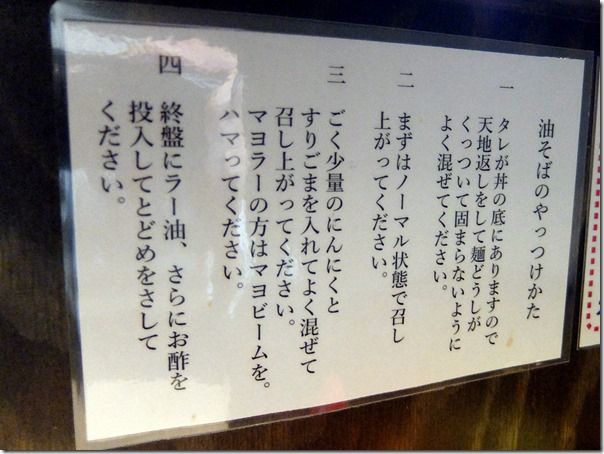 油そばのやっつけかた
一
タレが丼の底にありますので
天地返しをして麺どうしが
くっついて固まらないように
よく混ぜてください。
二
まずはノーマル状態で召し
上がってください。
三
ごく少量のにんにくと
すりごまを入れてよく混ぜて
召し上がってください。
マヨラーの方はマヨビームを。
ハマってください。
四
終盤にラー油、さらにお酢を
投入してとどめをさして
ください。